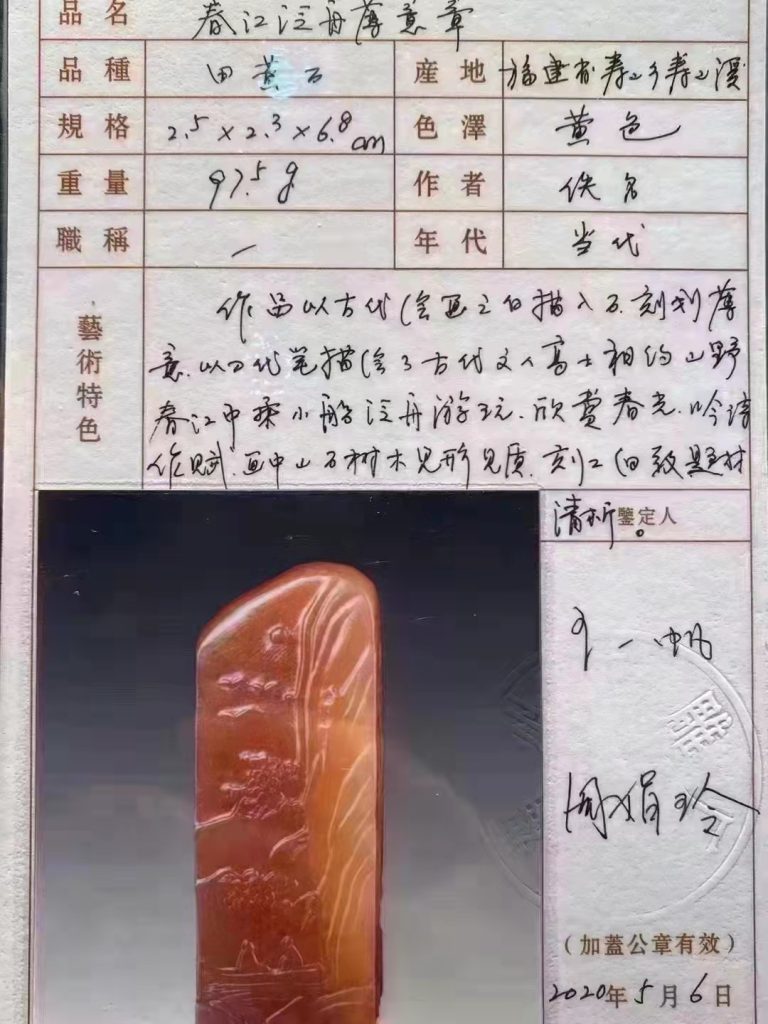 品名 春江泛舟薄意章
品種 田黄石 産地 福建省寿山乡寿山溪
規格 2.5×2.3×6.8cm 色澤 黄色
重量 97.5g 作者 佚名
職稱 — 年代 当代
藝術特色
作品以古代绘画之白描入石.刻划薄
意.以刀代笔描绘了古代文人高士相约山野
春江中乘小船泛舟游玩.欣赏春光.吟诗
作赋.画中山石树木见形见质.刻工白致题材
清晰。
鑒定人
王一帆
周娟玲
(加蓋公章有效)
2020年5月6日